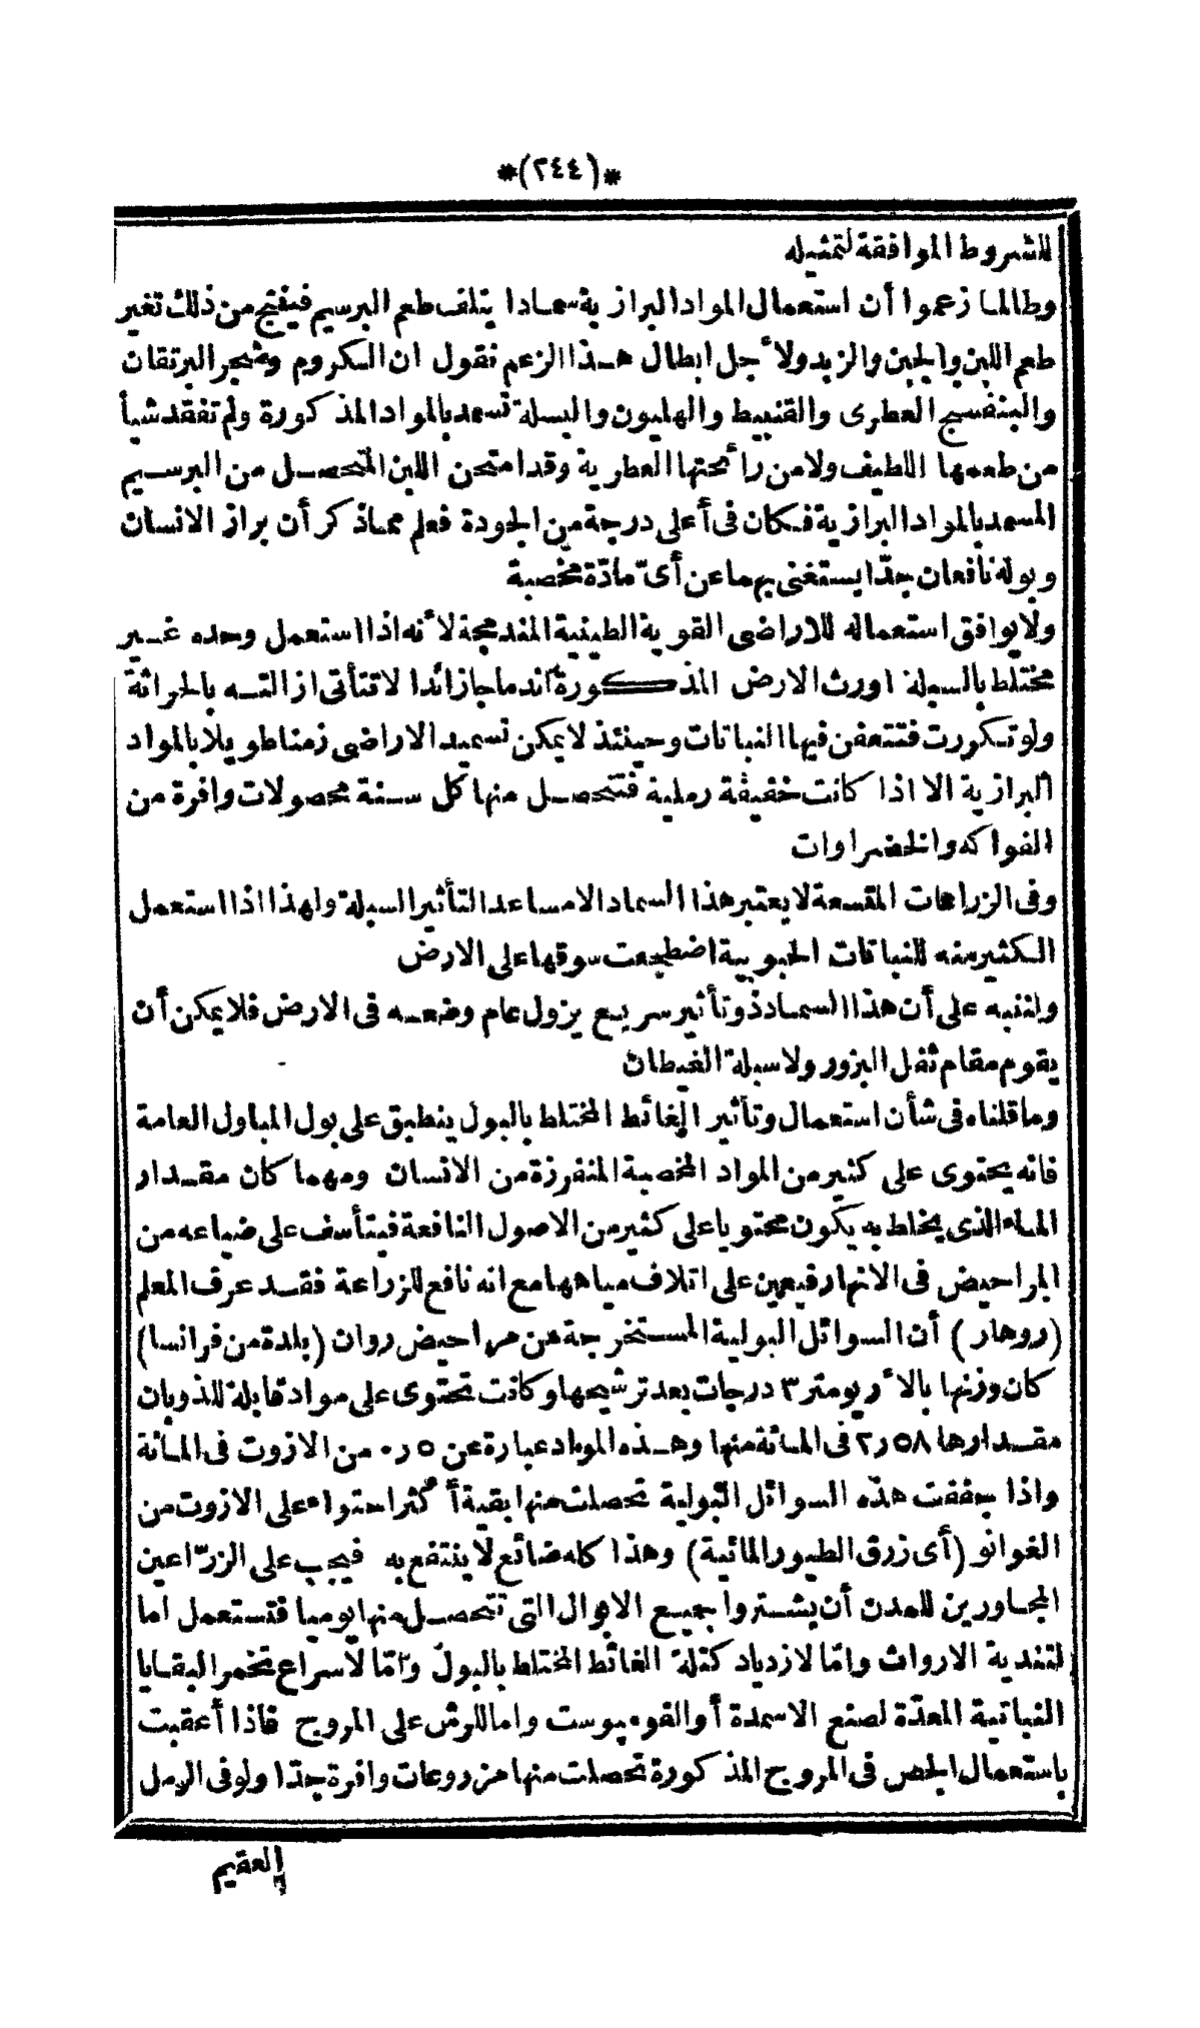 *(٢٤٤)*
للشروط الموافقة لتمثيله
وطالما زعموا أن استعمال المواد البرازية سمادا يتلف طعم البرسيم فينتج من ذلك تغير
طعم اللبن والجبن والزبد ولأجل ابطال هذا الزعم نقول ان الكروم وشجر البرتقان
والبنفسج العطرى والقنبيط والهليون والبسلة تسمد بالمواد المذكورة ولم تفقد شيأ
من طعمها اللطيف ولا من رائحتها العطرية وقد امتحن اللبن المتحصل من البرسيم
المسمد بالمواد البرازية فكان فى أعلى درجة من الجودة فعلم مماذكر أن براز الانسان
وبوله نافعان جدّا يستغنى بهما عن أىّ مادّة مخصبة
ولا يوافق استعماله للاراضى القوية الطينية المندمجة لأنه اذا استعمل وحده غير
مختلط بالسبلة اورث الارض المذكورة اندماجا زائدا لا تتأتى ازالته بالحراثة
ولو تكررت فتتعفن فيها النباتات وحينئذ لا يمكن تسميد الاراضى زمنا طويلا بالمواد
البرازية الا اذا كانت خفيفة رملية فتتحصل منها كل سنة محصولات وافرة من
الفواكه والخضراوات
وفى الزراعات المتسعة لا يعتبر هذا السماد الا مساعدا لتأثير السبلة ولهذا اذا استعمل
الكثير منه للنباتات الحبوبية اضطجعت سوقها على الارض
ولننبه على أن هذا السماد ذو تأثير سريع يزول عام وضعه فى الارض فلا يمكن أن
يقوم مقام ثفل البزور ولا سبلة الغيطان
وما قلناه فى شأن استعمال وتأثير الغائط المختلط بالبول ينطبق على بول المباول العامة
فانه يحتوى على كثير من المواد المخصبة المنفرزة من الانسان ومهما كان مقدار
الماء الذى يخلط به يكون محتويا على كثير من الاصول النافعة فيتأسف على ضياعه من
المراحيض فى الانهار فيعين على اتلاف مياهها مع انه نافع للزراعة فقد عرف المعلم
(روهار) أن السوائل البولية المستخرجة من مراحيض روان (بلدة من فرانسا)
كان وزنها بالأريومتر ٣ درجات بعد ترشيحها وكانت تحتوى على مواد قابلة للذوبان
مقدارها ٥٨ر٢ فى المائة منها وهذه المواد عبارة عن ٥ر٠ من الازوت فى المائة
واذا جففت هذه السوائل البولية تحصلت منها بقية أكثر احتواء على الازوت من
الغوانو (أى زرق الطيور المائية) وهذا كله ضائع لا ينتفع به فيجب على الزرّاعين
المجاورين للمدن أن يشتروا جميع الابوال التى تتحصل منها يوميا فتستعمل اما
لتندية الارواث وامّا لازدياد كتلة الغائط المختلط بالبول وامّا لاسراع تخمر البقايا
النباتية المعدّة لصنع الاسمدة أو القومپوست واما للرش على المروج فاذا أعقبت
باستعمال الجص فى المروج المذكورة تحصلت منها مزروعات وافرة جدّا ولو فى الرمل
العقيم